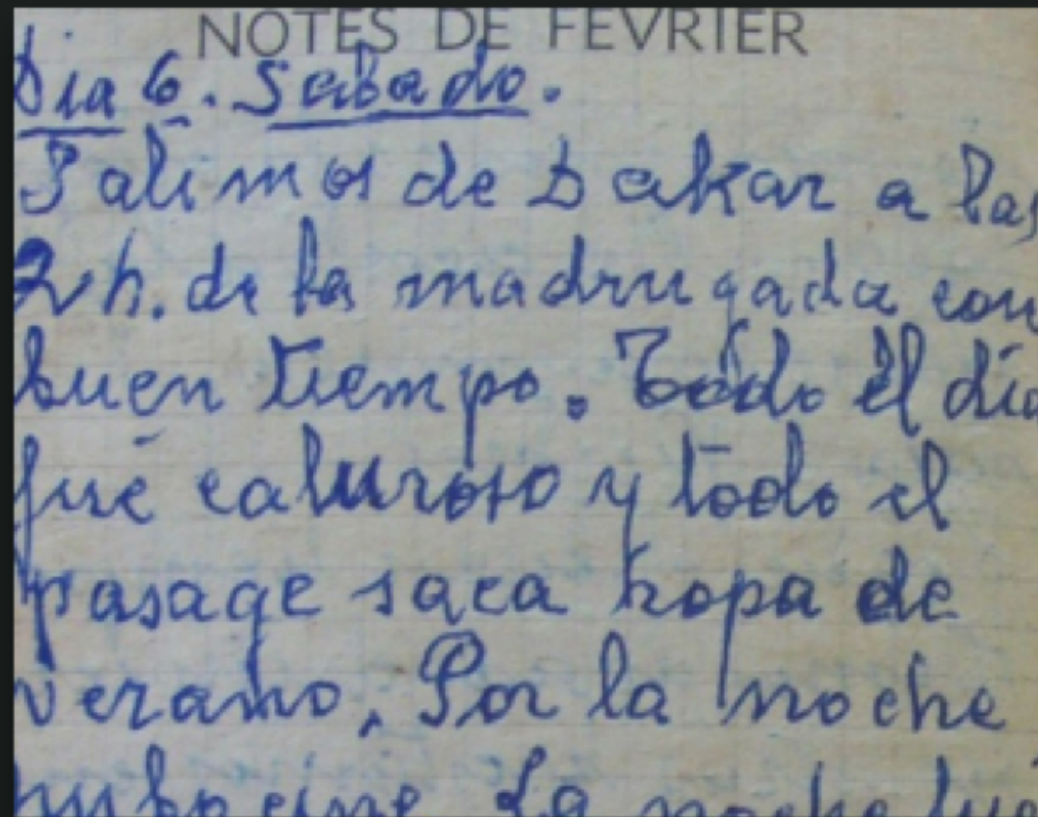 NOTES DE FEVRIER
Dia 6. Sabado.
Salimos de Dakar a las
2 h. de la madrugada con
buen tiempo. Todo el día
fué caluroso y todo el
pasage saca ropa de
verano. Por la noche
hubo cine. La noche fué